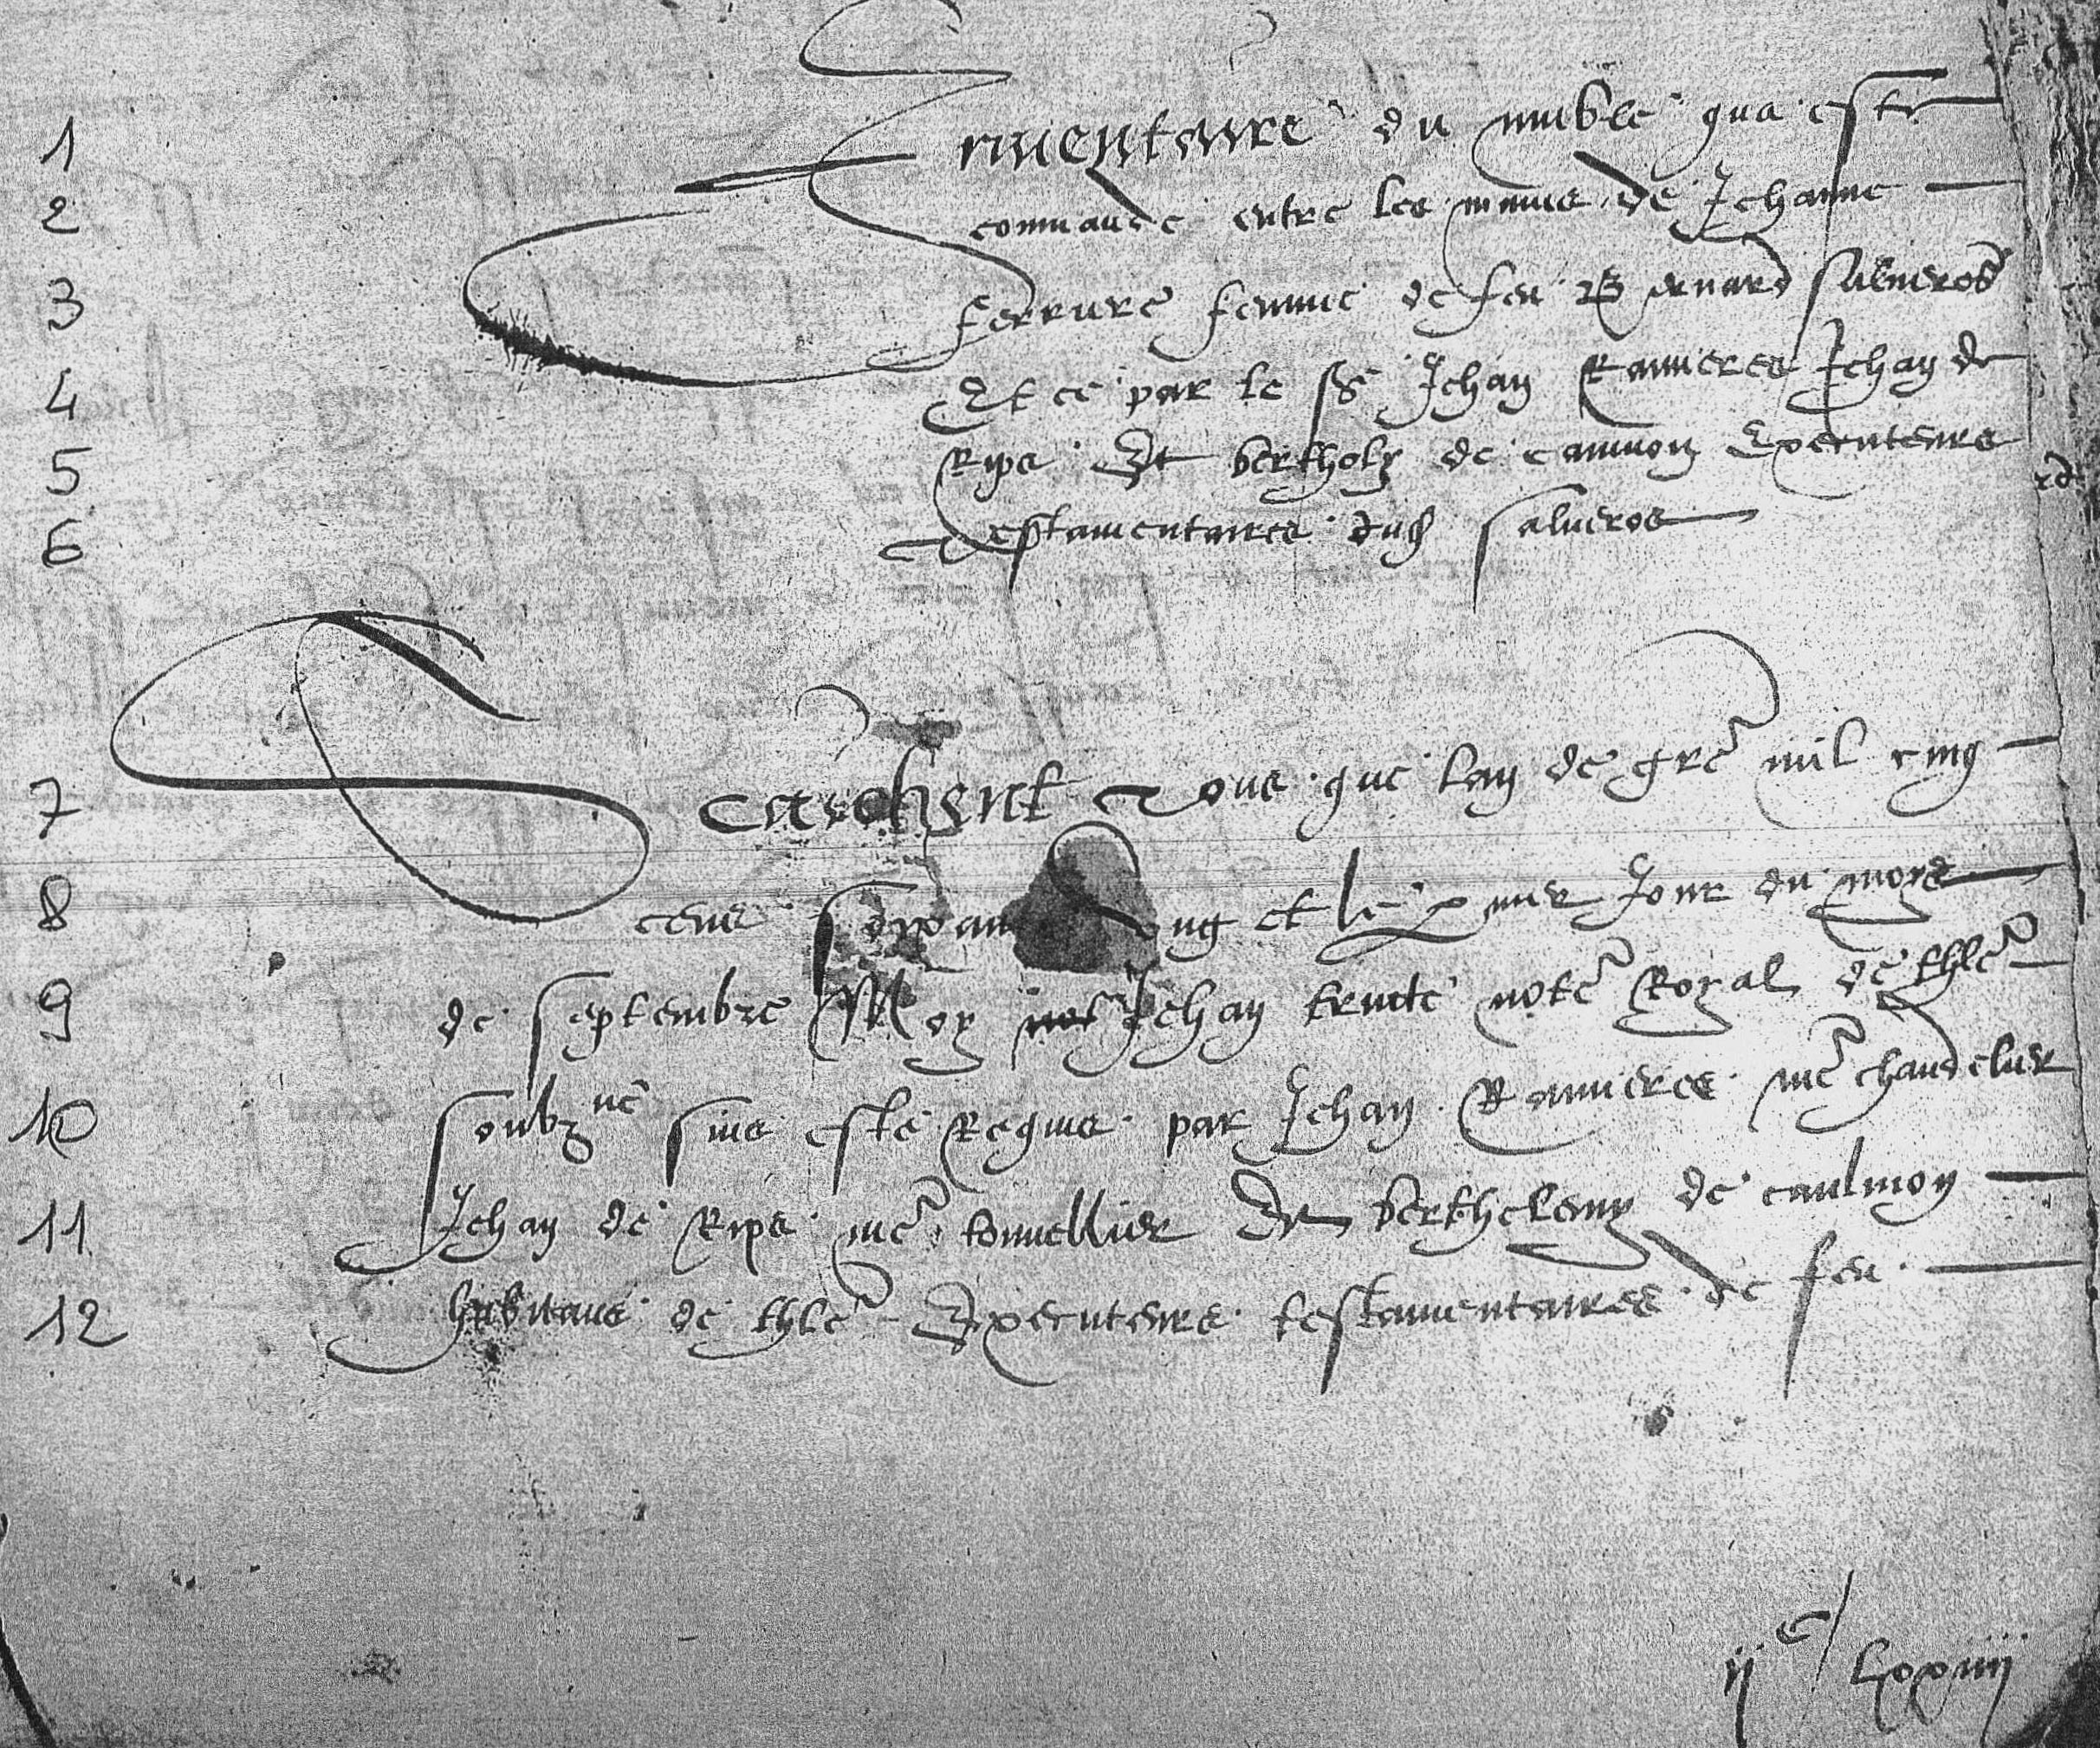 1 Inventaire du muble qua este
2 commande entre les mains de Jehanne
3 ferriere femme de feu Bernard salveros
4 Et ce par le sr Jehan Ranieres Jehan de
5 Rips Et bertholy de caumon Executeurs
6 Testamentaires dud salveros
7 Saichent Tous que lan de gre mil cinq
8 cens soixan ung et le xiiier Jour du moys
9 de septembre Moy Jehan note Royal de thle
10 soubzne suis este Requis par Jehan Ranieres me chandelier
11 Jehan de Rips me tonnellier Et berthelemy de caulmon
12 habitans de thle Executeurs testamentaires de feu
ijc lxxiiii